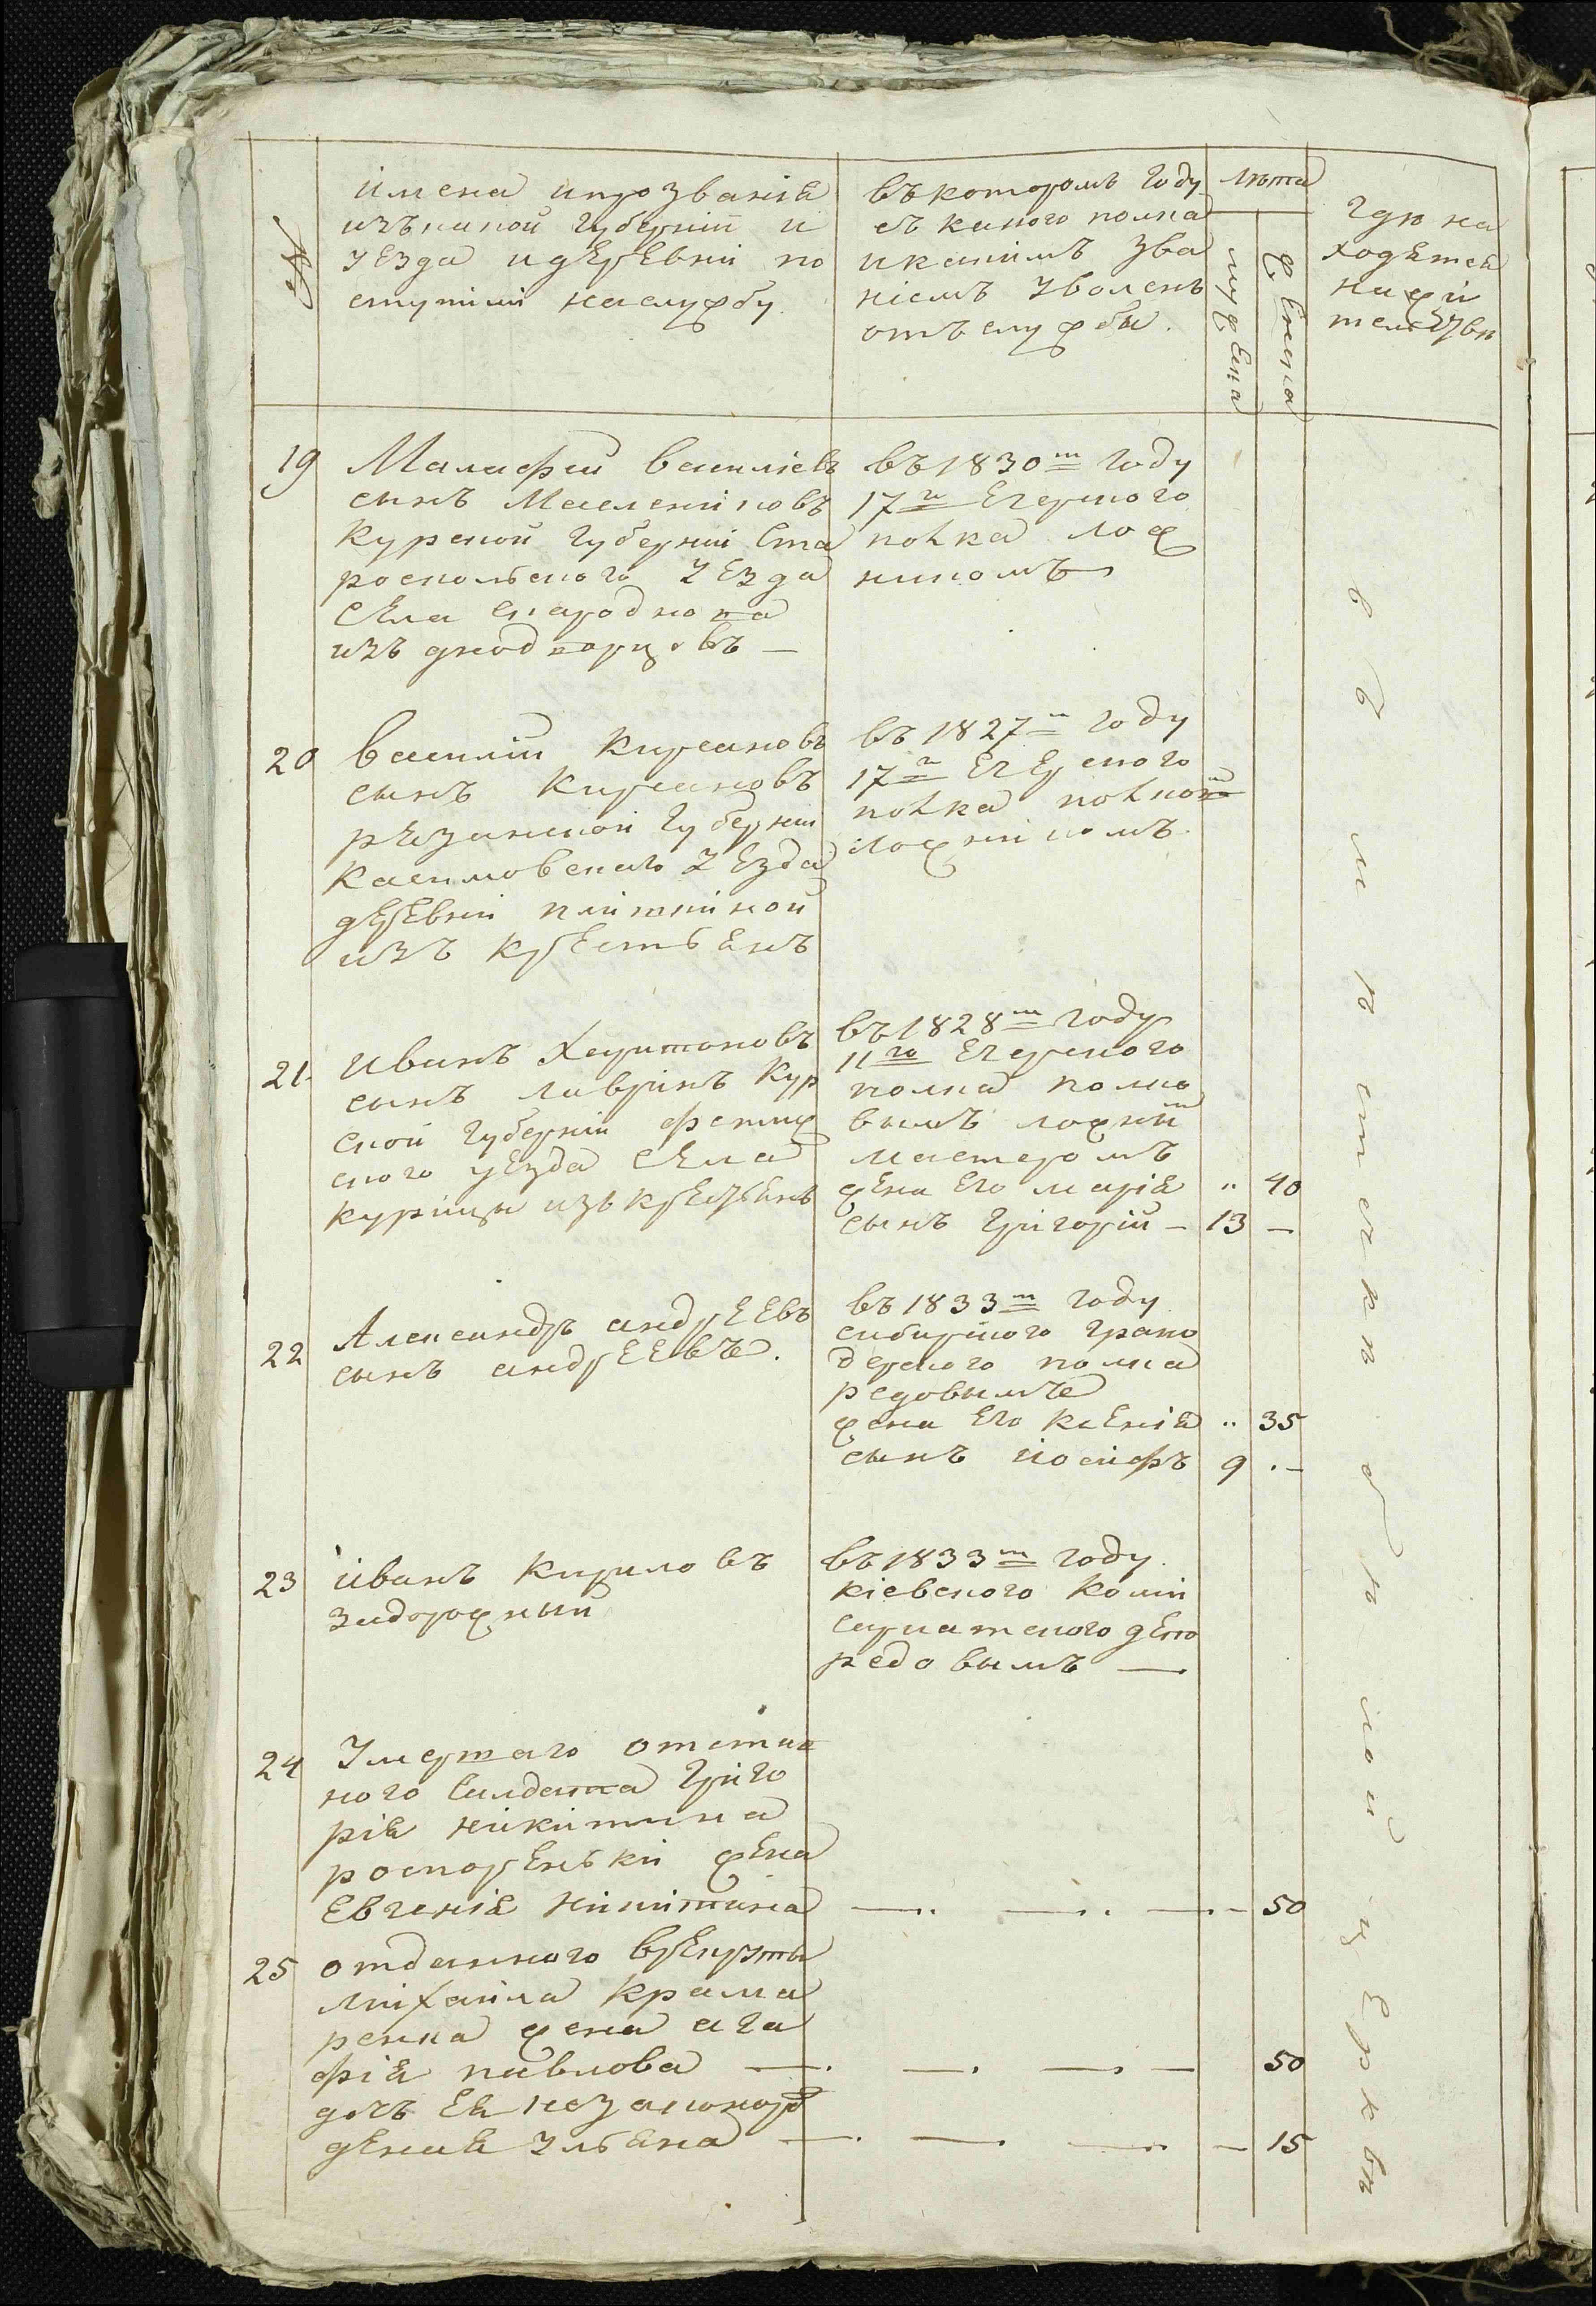 №
имена ипрозванiя
изъкакой губернiи и
уезда идеревни по
ступили наслужбу.
въкоторомъ году
съ какого полка
икакимъ зва
нiемъ уволенъ
отъслужбы.
лѣта
мужеска
женска
гдѣ на
ходятся
нажи
тельствѣ
19 Малафей василiевъ
сынъ Маслениковъ
курской губернiи Ста
роскольского уезда
села
изъ днодворцовъ —
въ 1830 м году
17 го Егерского
полка лож
никомъ
20 василiй кирсановъ
сынъ кирсановъ
резанской губернiи
касимовскаго уезда
деревни
изъ крестьянъ
въ 1827 м году
17 го Егерского
полка
ложникомъ
21 иванъ Харитоновъ
сынъ лавринъ кур
ской губернiи
ского уезда села
курицы изъ
въ 1828 м году
11 го Егерского
полка полко
вымъ
мастеромъ
жена Его марiя " 40
сынъ григорiй — 13 —
22 Александръ андреевъ
сынъ андреевъ.
въ 1833 м году
сибирского грано
дерского полка
редовымъ
жена Его ксенiя " 35
сынъ iосифъ 9 . —
23 иванъ кириловъ
задорожный
въ 1833 м году.
кiевского коми
сарiатского депо
редовымъ —
24 умершаго отстав
ного Салдата григо
рiя никитина
жена
евгенiя никитина — .. — . — . — 50
25 отданного врекруты
михаила крама
ренка жена ага
фiя павлова — . — . — . — 50
дочь Ея незаконорож
деная улiяна — . — . — .. — 15
въ мѣстечкѣ
церквѣ